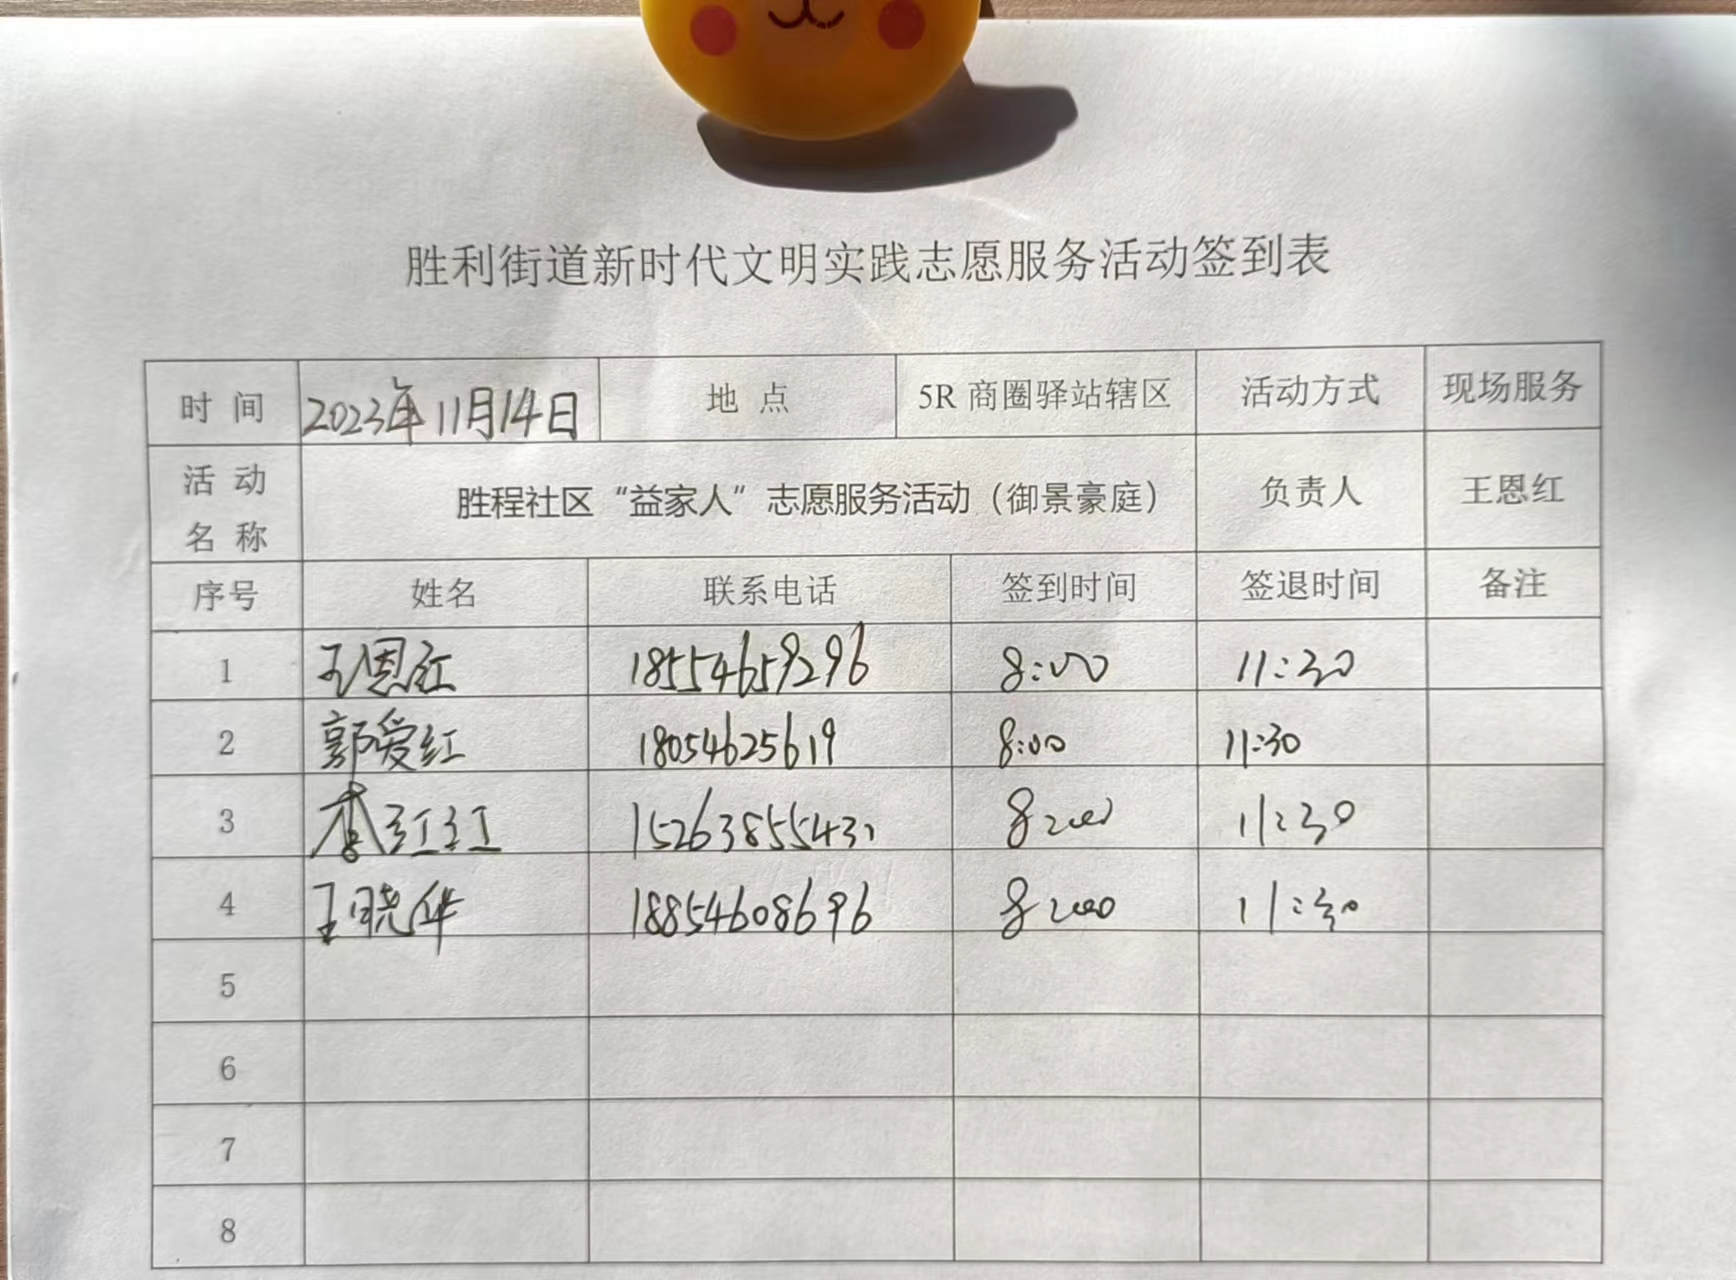 胜利街道新时代文明实践志愿服务活动签到表
时 间 2023年11月14日 地 点 5R 商圈驿站辖区 活动方式 现场服务
活 动 名 称 胜程社区“益家人”志愿服务活动（御景豪庭） 负责人 王恩红
序号 姓名 联系电话 签到时间 签退时间 备注
1 王恩红 18554659296 8:00 11:30
2 郭爱红 18054625619 8:00 11:30
3 李红红 15263855431 8:00 11:30
4 王晓华 18854608696 8:00 11:30
5
6
7
8